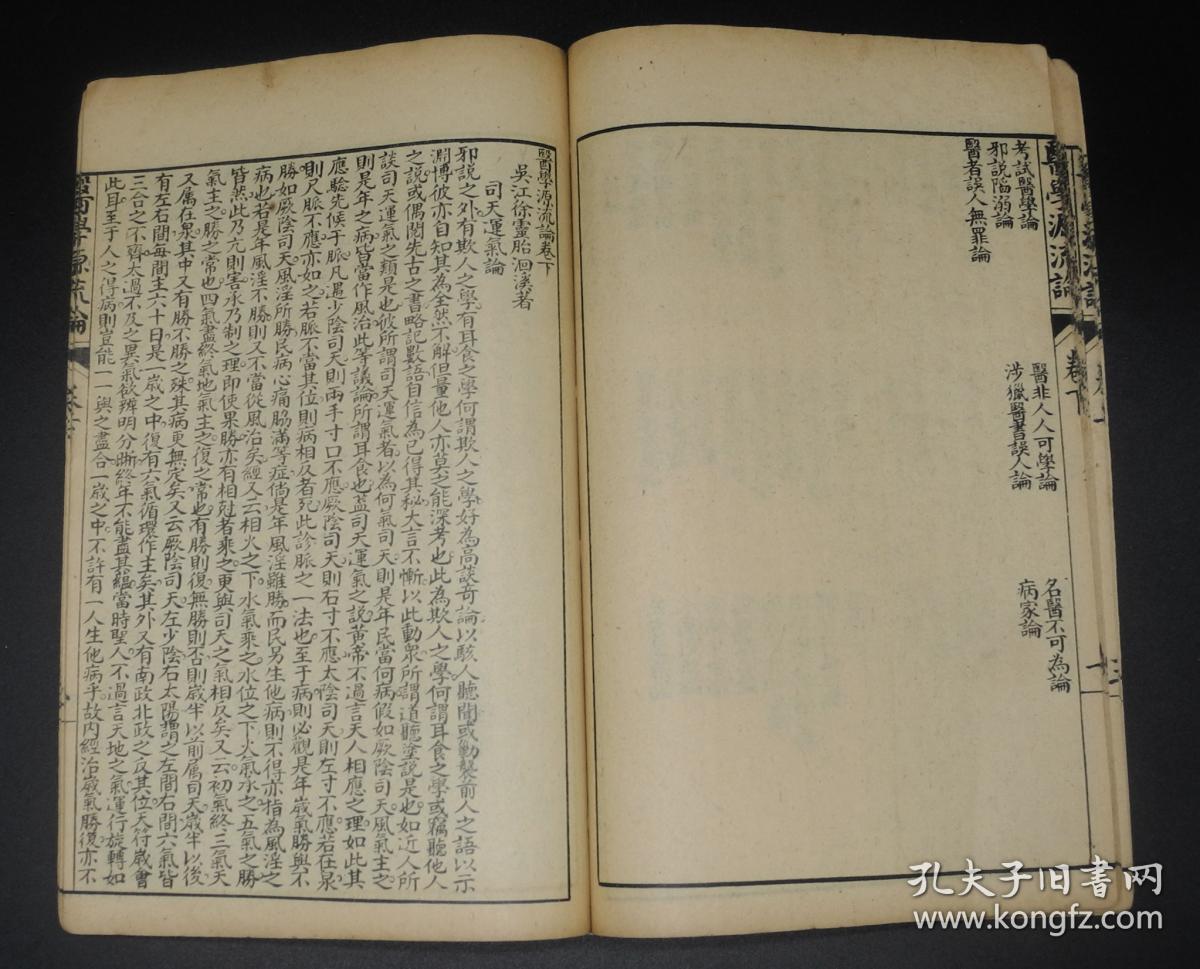 醫學源流論
卷下
考試醫學論
醫非人人可學論
名醫不可為論
邪說陷溺論
涉獵醫書誤人論
病家論
醫者誤人無罪論
醫學源流論卷下
吳江徐靈胎洄溪著
司天運氣論
邪說之外有欺人之學有耳食之學何謂欺人之學好為高談奇論以駭人聽聞或勦襲前人之語以示
淵博彼亦自知其為全然不解但量他人亦莫之能深考也此為欺人之學何謂耳食之學或竊聽他人
之說或偶閱先古之書略記數語自信為已得其秘大言不慚以此動衆所謂道聽塗說是也如近人所
談司天運氣之類是也彼所謂司天運氣者以為何氣司天則是年民當何病假如厥陰司天風氣主之
則是年之病皆當作風治此等議論所謂耳食也蓋司天運氣之說黃帝不過言天人相應之理如此其
應驗先候于脈凡遇少陰司天則兩手寸口不應厥陰司天則右寸不應太陰司天則左寸不應若在泉
則尺脈不應亦如之若脈不當其位則病相反者死此診脈之一法也至于病則必觀是年歲氣勝與不
勝如厥陰司天風淫所勝民病心痛脇滿等症倘是年風淫雖勝而民另生他病則不得亦指為風淫之
病也若是年風淫不勝則又不當從風治矣經又云相火之下水氣乘之水位之下火氣承之五氣之勝
皆然此乃亢則害承乃制之理即使果勝亦有相尅者乘之更與司天之氣相反矣又云初氣終三氣天
氣主之勝之常也四氣盡終氣地氣主之復之常也有勝則復無勝則否則歲半以前屬司天歲半以後
又屬在泉其中又有勝不勝之殊其病更無定矣又云厥陰司天左少陰右太陽謂之左間右間六氣皆
有左右間每間主六十日是一歲之中復有六氣循環作主矣其外又有南政北政之反其位天符歲會
三合之不齊太過不及之異氣欲辨明分晰終年不能盡其蘊當時聖人不過言天地之氣運行旋轉如
此耳至于人之得病則豈能一一與之盡合一歲之中不許有一人生他病乎故内經治歲氣勝復亦不
孔夫子旧书网
www.kongfz.com